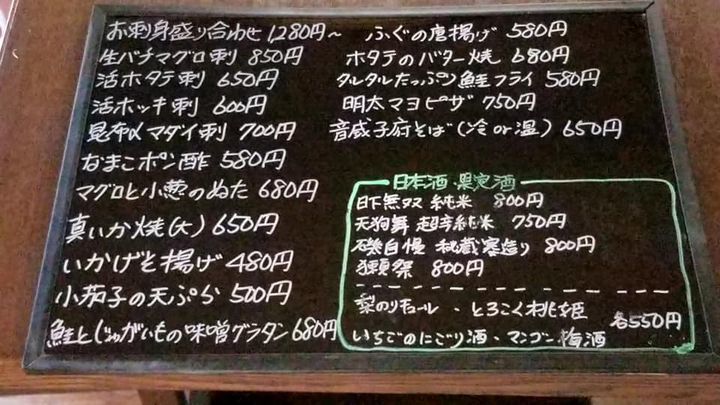 お刺身盛り合わせ 1280円～
生バチマグロ刺 850円
活ホタテ刺 650円
活ホッキ刺 600円
昆布〆マダイ刺 700円
なまこポン酢 580円
マグロと小葱のぬた 680円
真いか焼(大) 650円
いかげそ揚げ 480円
小茄子の天ぷら 500円
鮭とじゃがいもの味噌グラタン 680円
ふぐの唐揚げ 580円
ホタテのバター焼 680円
タルタルたっぷり鮭フライ 580円
明太マヨピザ 750円
音威子府そば(冷or温) 650円
日本酒・果実酒
日下無双 純米 800円
天狗舞 超辛純米 750円
磯自慢 秘蔵寒造り 800円
獺祭 800円
梨のリキュール・とろこく桃姫
各550円
いちごのにごり酒・マンゴー梅酒